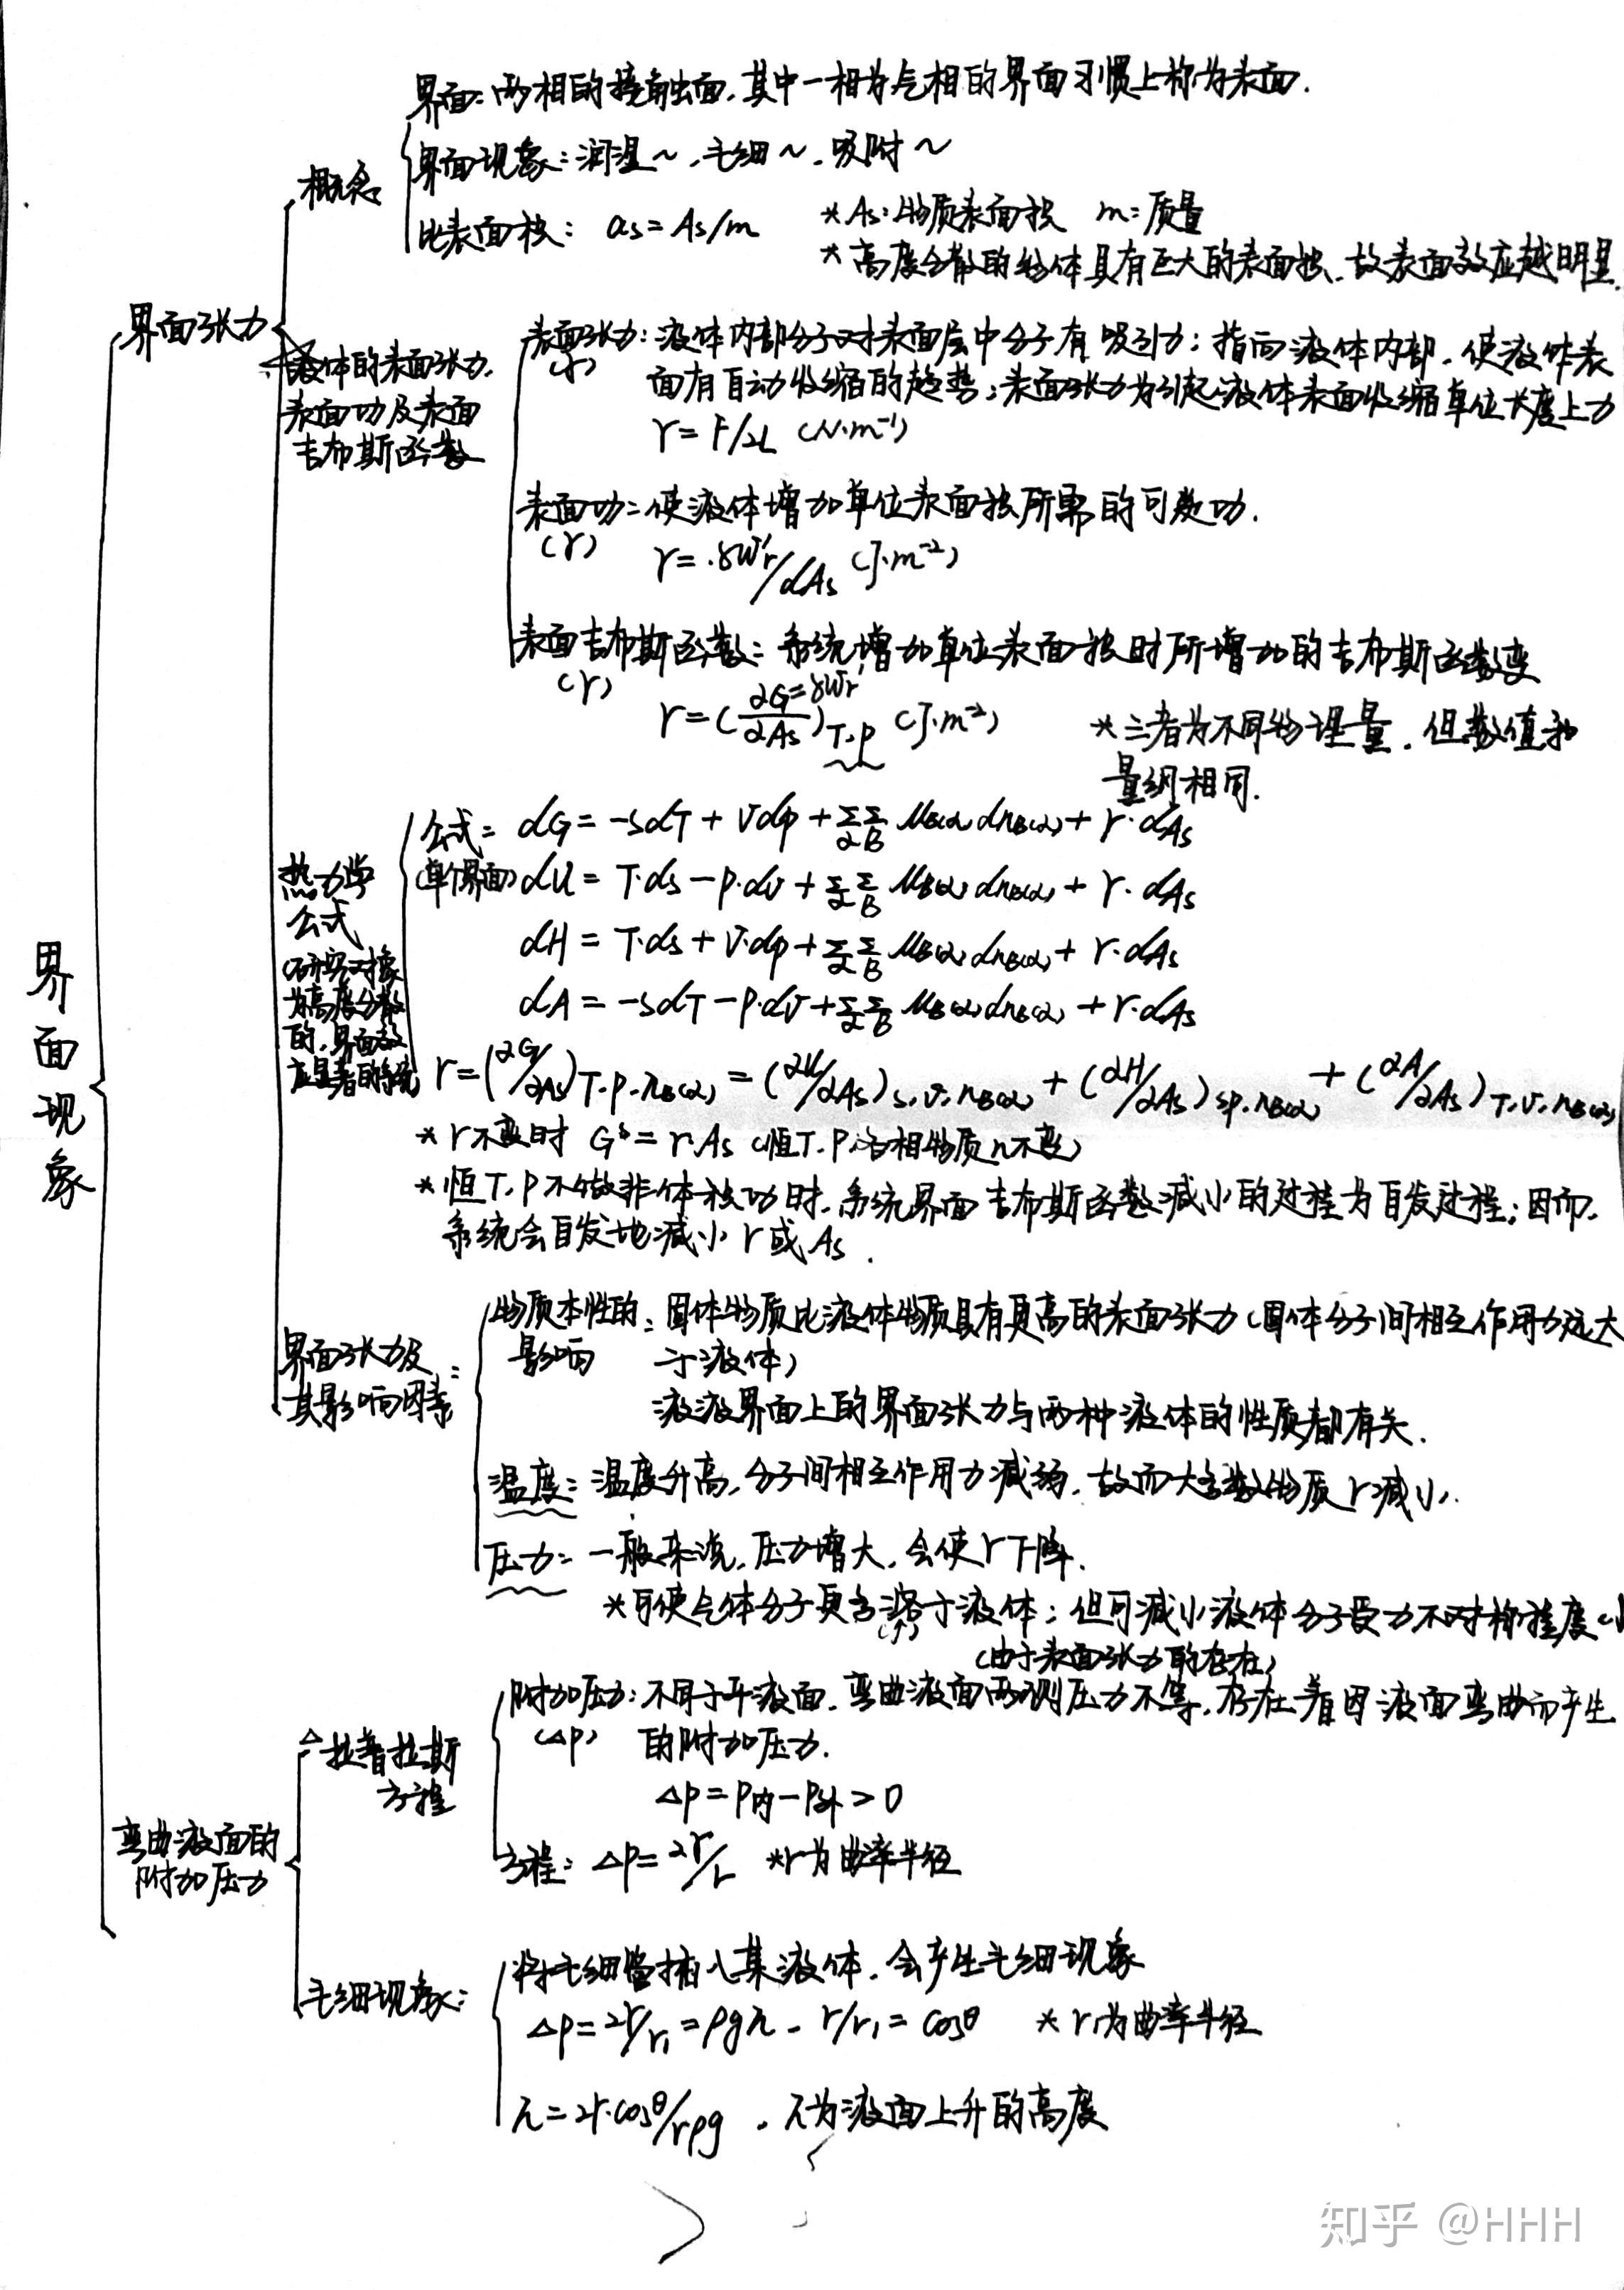 界面现象
界面张力
概念
界面：两相的接触面，其中一相为气相的界面习惯上称为表面．
界面现象：润湿～，毛细～，吸附～
比表面积： as=As/m *As：物质表面积 m：质量
*高度分散的物体具有巨大的表面积，故表面效应越明显．
液体的表面张力，
表面功及表面
吉布斯函数
表面张力：液体内部分子对表面层中分子有吸引力；指向液体内部，使液体表
(γ) 面有自动收缩的趋势；表面张力为引起液体表面收缩单位长度上力
γ=F/2L (N·m⁻¹)
表面功：使液体增加单位表面积所需的可逆功．
(γ) γ=δWr'/dAs (J·m⁻²)
表面吉布斯函数：系统增加单位表面积时所增加的吉布斯函数变
(γ) γ=(∂G=δWr'/∂As)T.p (J·m⁻²) *三者为不同物理量，但数值和
量纲相同．
热力学
公式
(研究对象
为高度分散
的，界面效
应显著的系统
公式： dG=-SdT+Vdp+ΣαΣB μB(α)dnB(α)+γ·dAs
(单个界面) dU=T·dS-p·dV+ΣαΣB μB(α)dnB(α)+γ·dAs
dH=T·dS+V·dp+ΣαΣB μB(α)dnB(α)+γ·dAs
dA=-SdT-p·dV+ΣαΣB μB(α)dnB(α)+γ·dAs
γ=(∂G/∂As)T.p.nB(α)=(∂U/∂As)S.V.nB(α)+(∂H/∂As)S.p.nB(α)+(∂A/∂As)T.V.nB(α)
*γ不变时 Gˢ=γ.As (恒T.P.各相物质n不变)
*恒T.P不做非体积功时，系统界面吉布斯函数减小的过程为自发过程；因而，
系统会自发地减小γ或As．
界面张力及
其影响因素：
物质本性的：固体物质比液体物质具有更高的表面张力(固体分子间相互作用力远大
影响 于液体)
液液界面上的界面张力与两种液体的性质都有关．
温度：温度升高，分子间相互作用力减弱，故而大多数物质γ减小．
压力：一般来说，压力增大，会使γ下降．
*可使气体分子更多溶于液体；但可减小液体分子受力不对称程度
弯曲液面的
附加压力
△拉普拉斯
方程
(由于表面张力的存在)
附加压力：不同于平液面，弯曲液面两测压力不等，存在着因液面弯曲而产生
(Δp) 的附加压力．
Δp=p内-p外>0
方程：Δp=2γ/r *r为曲率半径
毛细现象：
将毛细管插入某液体，会产生毛细现象
Δp=2γ/r₁=ρgh - r/r₁=cosθ *r₁为曲率半径
h=2γ·cosθ/rρg ，h为液面上升的高度
知乎 @HHH